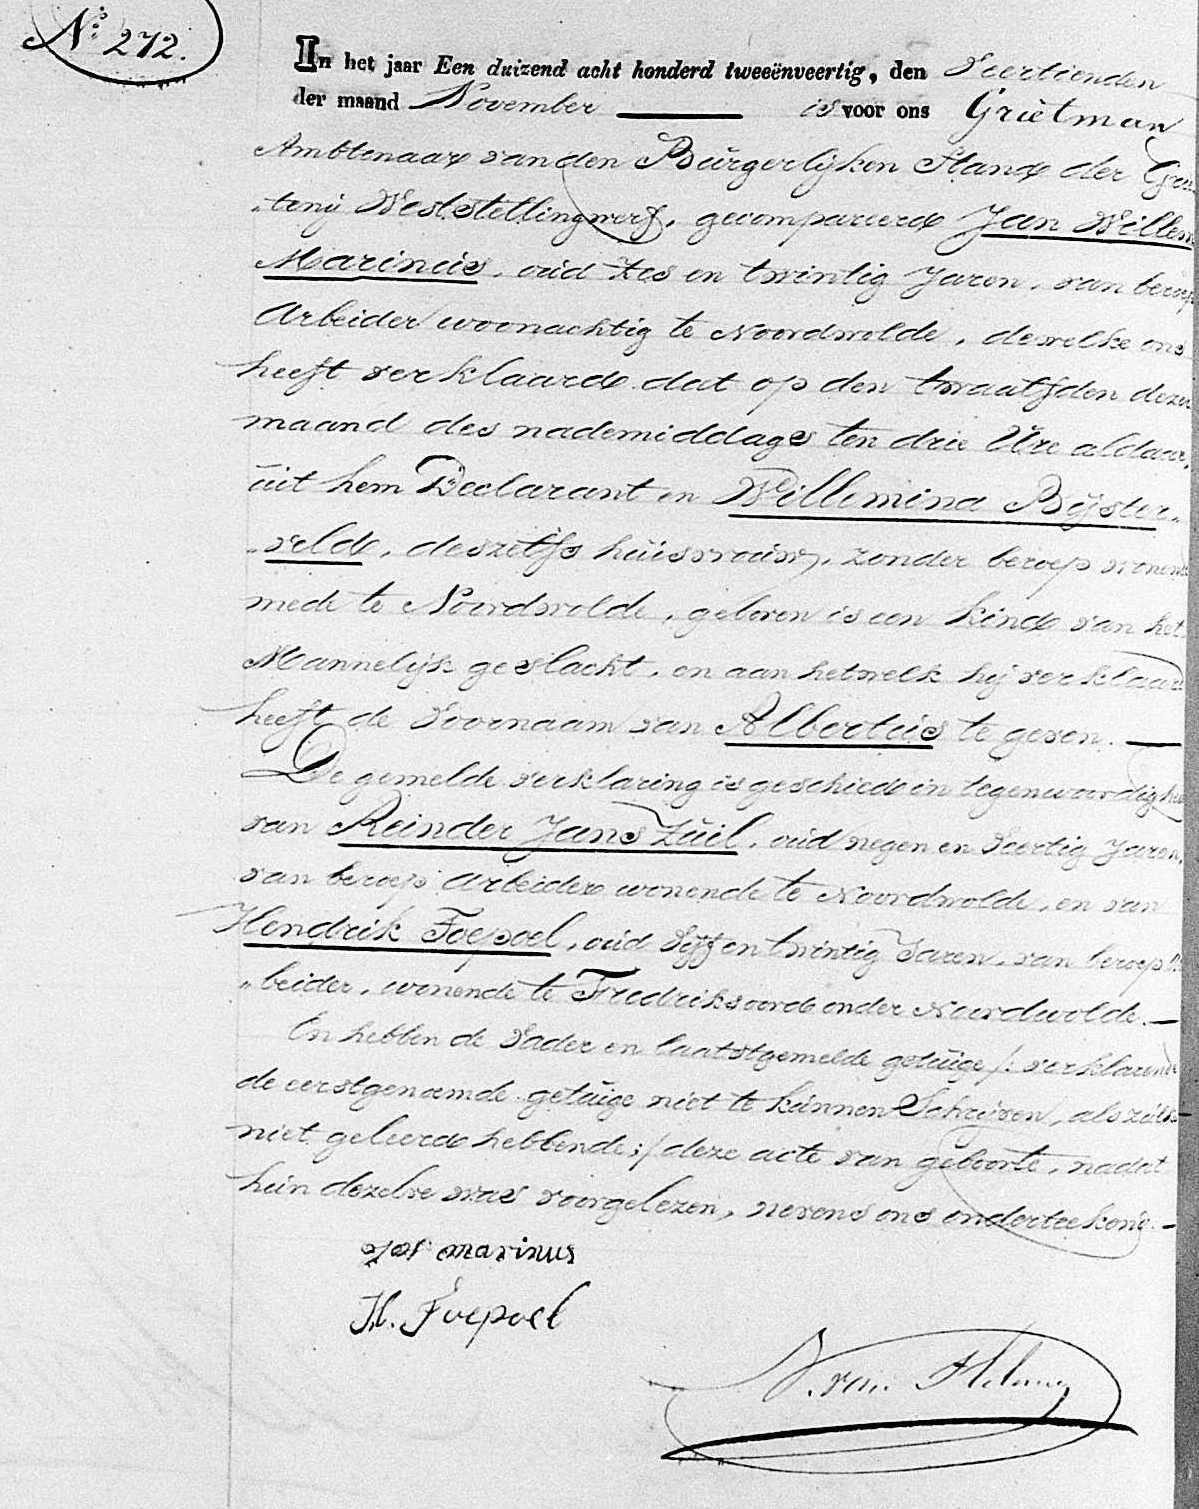 N.o 272.
In het jaar Een duizend acht honderd tweeënveertig, den Veertienden
der maand November is voor ons Grietman
Ambtenaar van den Burgerlijken Stand der Grie
tenij Weststellingwerf, gecompareerd Jan Willem
Marinus, oud zes en twintig Jaren, van beroep
Arbeider woonachtig te Noordwolde, dewelke ons
heeft verklaard dat op den twaalfden dezer
maand des nademiddags ten drie Ure aldaar,
uit hem Declarant en Willemina Bijster„
„veld, deszelfs huisvrouw, zonder beroep wonende
mede te Noordwolde, geboren is een kind van het
Mannelijk geslacht, en aan hetwelk hij verklaard
heeft de Voornaam van Albertus te geven.
De gemelde verklaring is geschied in tegenwoordigheid
van Reinder Jans Zuil, oud negen en Veertig Jaren,
van beroep Arbeider wonende te Noordwolde, en van
Hendrik Foepoel, oud Vijf en twintig Jaren, van beroep Ar
„beider, wonende te Fredriksoord onder Noordwolde.
En hebben de Vader en laatstgemelde getuige /: verklarende
de eerstgenoemde getuige niet te kunnen Schrijven, als zulks
niet geleerd hebbende :/ deze acte van geboorte, nadat
hun dezelve was voorgelezen, nevens ons onderteekend.
marinus
H. Foepoel
van